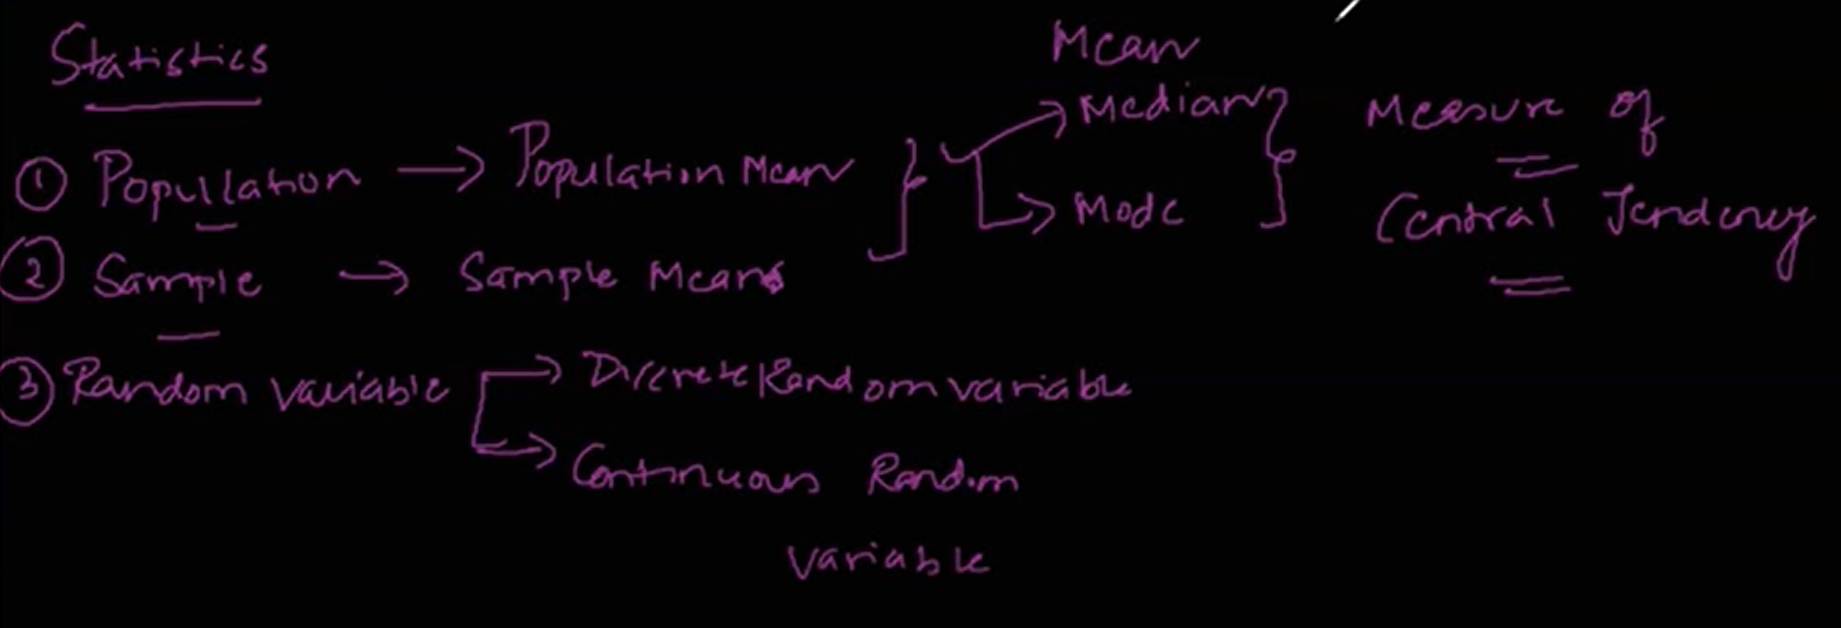 Statistics
① Popullation → Population Mean
② Sample → Sample Means
Mean
Median
Mode
Measure of
Central Tendency
③ Random variable → Discrete Random variable
→ Continuous Random
variable